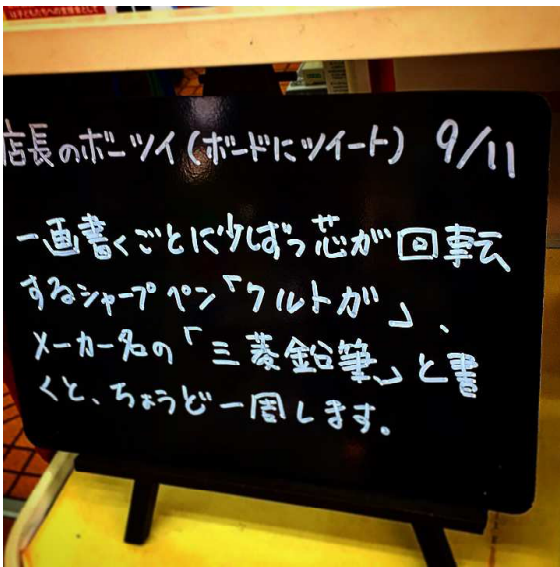 店長のボーツイ(ボードにツイート) 9/11
一画書くごとに少しずつ芯が回転
するシャープペン「クルトガ」、
メーカー名の「三菱鉛筆」と書
くと、ちょうど一周します。